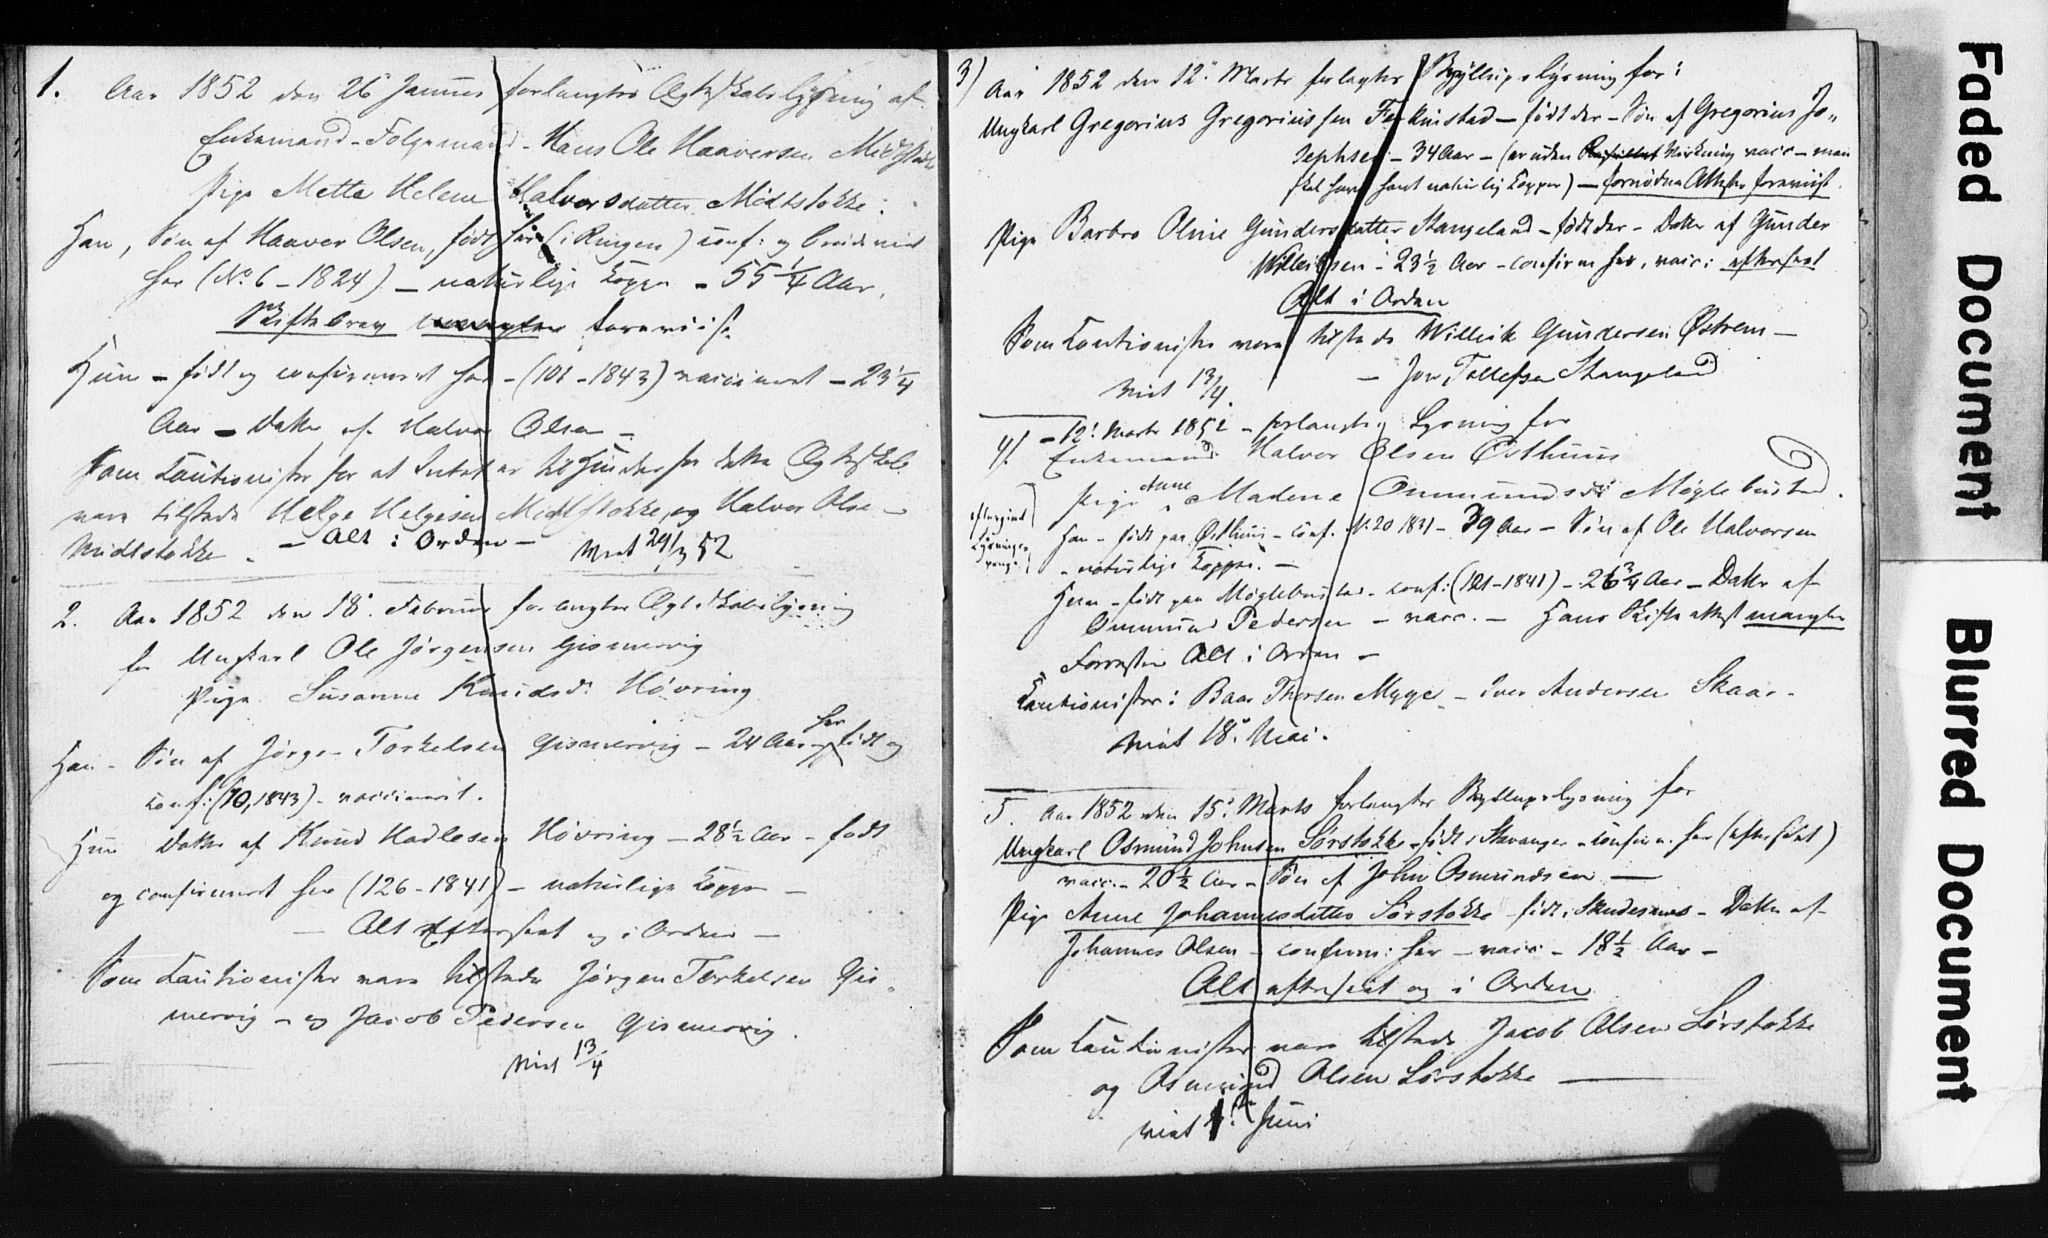 1. Aar 1852 den 26' Januar forlangtes Ægteskabslysning af
Enkemand-Folgemand- Hans Ole Haaversen Midtstokke
Pige Mette Helene Halvorsdatter Midtstokke.
Han, Søn af Haaver Olsen, født her (i Ringen) conf: og
her (No 6 - 1824) - naturlige Kopper - 55 1/4 Aar.
Skiftebrev mangler foreviist.
Hun - født og confirmeret her - (101 - 1843) vaccineret - 23 1/4
Aar - Datter af Halvor Olsen -
Som Cautionister for at Intet er til Hinder for dette Ægteskab
vare tilstede Helge Helgesen Midtstokke, og Halvor Olsen
Midtstokke. - Alt i Orden - Viet 29/3 52
2. Aar 1852 den 18' Februar forlangtes Ægteskabslysning
for Ungkarl Ole Jørgensen Gismervig
Pige Susanne Knudsd: Høvring
Han - Søn af Jørgen Torkelsen Gismervig - 24 Aar - her født og
conf: (10, 1843) - vaccineret.
Hun Datter af Knud Hadlesen Høvring - 28 1/2 Aar - født
og confirmeret her (126 - 1841) - naturlige Kopper -
- Alt efterseet og i Orden -
Som Cautionister vare tilstede Jørgen Torkelsen Gis-
mervig - og Jacob Pedersen Gismervig.
Viet 13/4
3) Aar 1852 den 12' Marts forlangtes Bryllupslysning for:
Ungkarl Gregorius Gregoriussen Ferkinstad - født der - Søn af Gregorius Jo-
sephsen - 34 Aar - (er uden Virkning vacc - man
skal have havt naturlig Kopper) - fornødne Attester foreviist.
Pige Barbro Oline Gundersdatter Stangeland - født der - Datter af Gunder
Willeiksen - 23 1/2 Aar - confirm her, vacc: efterseet
Alt i Orden
Som Cautionister vare tilstede Willeik Gundersen Østrem -
- Jon Tollefsen Stangeland
Viet 13/4.
4/. - 12' Marts 1852 - forlangtes Lysning for
Enkemand Halvor Olsen Østhuus
Pige Anne Madene Ommundsd: Møglebustad.
Lysninger
Han - født paa Østhuus - conf. No 20 1831 - 39 Aar - Søn af Ole Halvorsen
- naturlige Kopper. -
Hun - født paa Møglebustad - conf: (101 - 1841) - 26 3/4 Aar - Datter af
Ommund Pedersen - vacc. - Hans Skifteattest mangler
Forresten Alt i Orden -
Cautionister: Baar Thorsen Mygge - Iver Andersen Skaar -
Viet 18' Mai.
5. Aar 1852 den 15' Marts forlangtes Bryllupslysning for
Ungkarl Osmund Johnsen Sørstokke - født i Stavanger - confirm. her (efterseet)
vacc. - 20 1/2 Aar - Søn af John Osmundsen -
Pige Anne Johannesdatter Sørstokke - født i Skudesnes - Datter af
Johannes Olsen - confirm: her - vacc: - 18 1/2 Aar -
Alt efterseet og i Orden
Som Cautionister vare tilstede Jacob Olsen Sørstokke
og Osmund Olsen Sørstokke -
Viet 1' Juni
Faded Document
Blurred Document